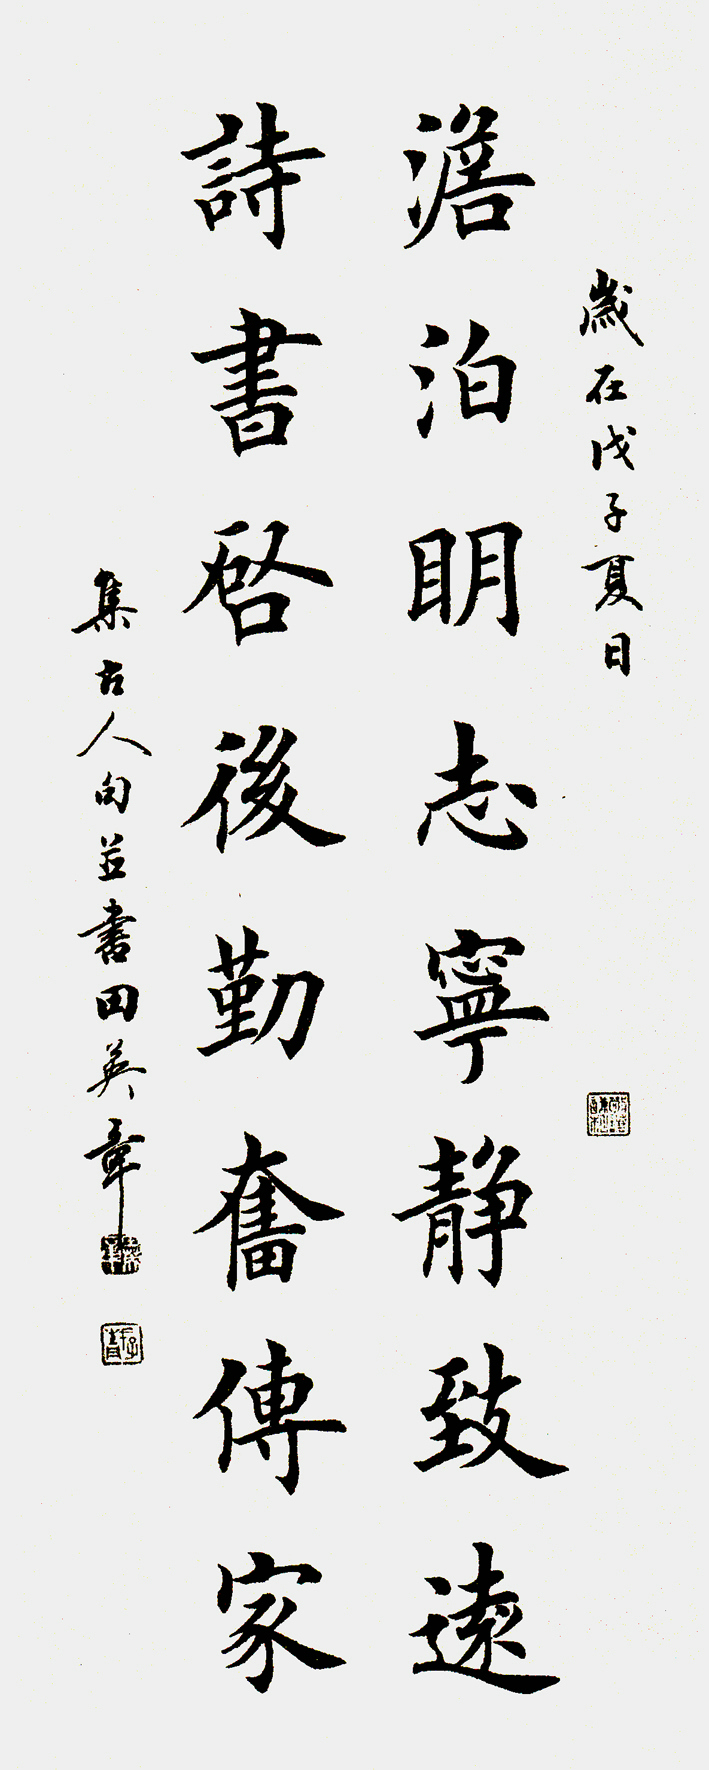 歲在戊子夏日
澹泊明志寧靜致遠
詩書啓後勤奮傳家
集古人句並書田英章